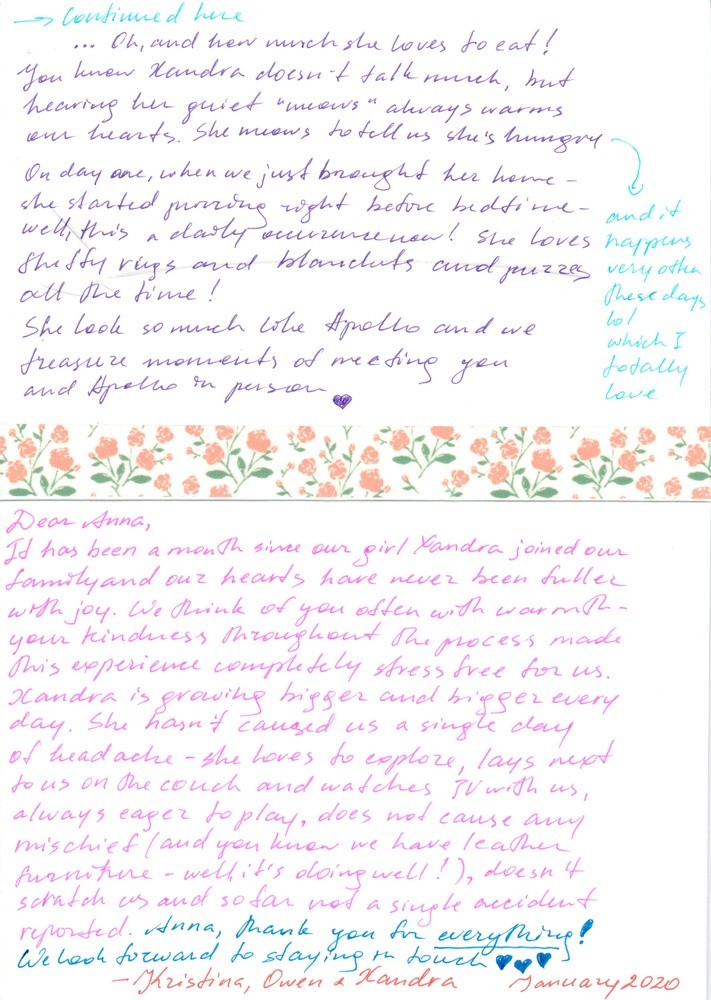 → Continued here
... Oh, and how much she loves to eat!
You know Xandra doesn't talk much, but
hearing her quiet "meows" always warms
our hearts. She meows to tell us she's hungry
and it
happens
very often
these days
lol
which I
totally
love
On day one, when we just brought her home –
she started purring right before bedtime –
well, this a daily occurrence now! She loves
fluffy rugs and blankets and purrs
all the time!
She look so much like Apollo and we
treasure moments of meeting you
and Apollo in person
Dear Anna,
It has been a month since our girl Xandra joined our
family and our hearts have never been fuller
with joy. We think of you often with warmth –
your kindness throughout the process made
this experience completely stress free for us.
Xandra is growing bigger and bigger every
day. She hasn't caused us a single day
of headache – she loves to explore, lays next
to us on the couch and watches TV with us,
always eager to play, does not cause any
mischief (and you know we have leather
furniture – well it's doing well!), doesn't
scratch us and so far not a single accident
reported. Anna, thank you for everything!
We look forward to staying in touch
– Kristina, Owen & Xandra January 2020